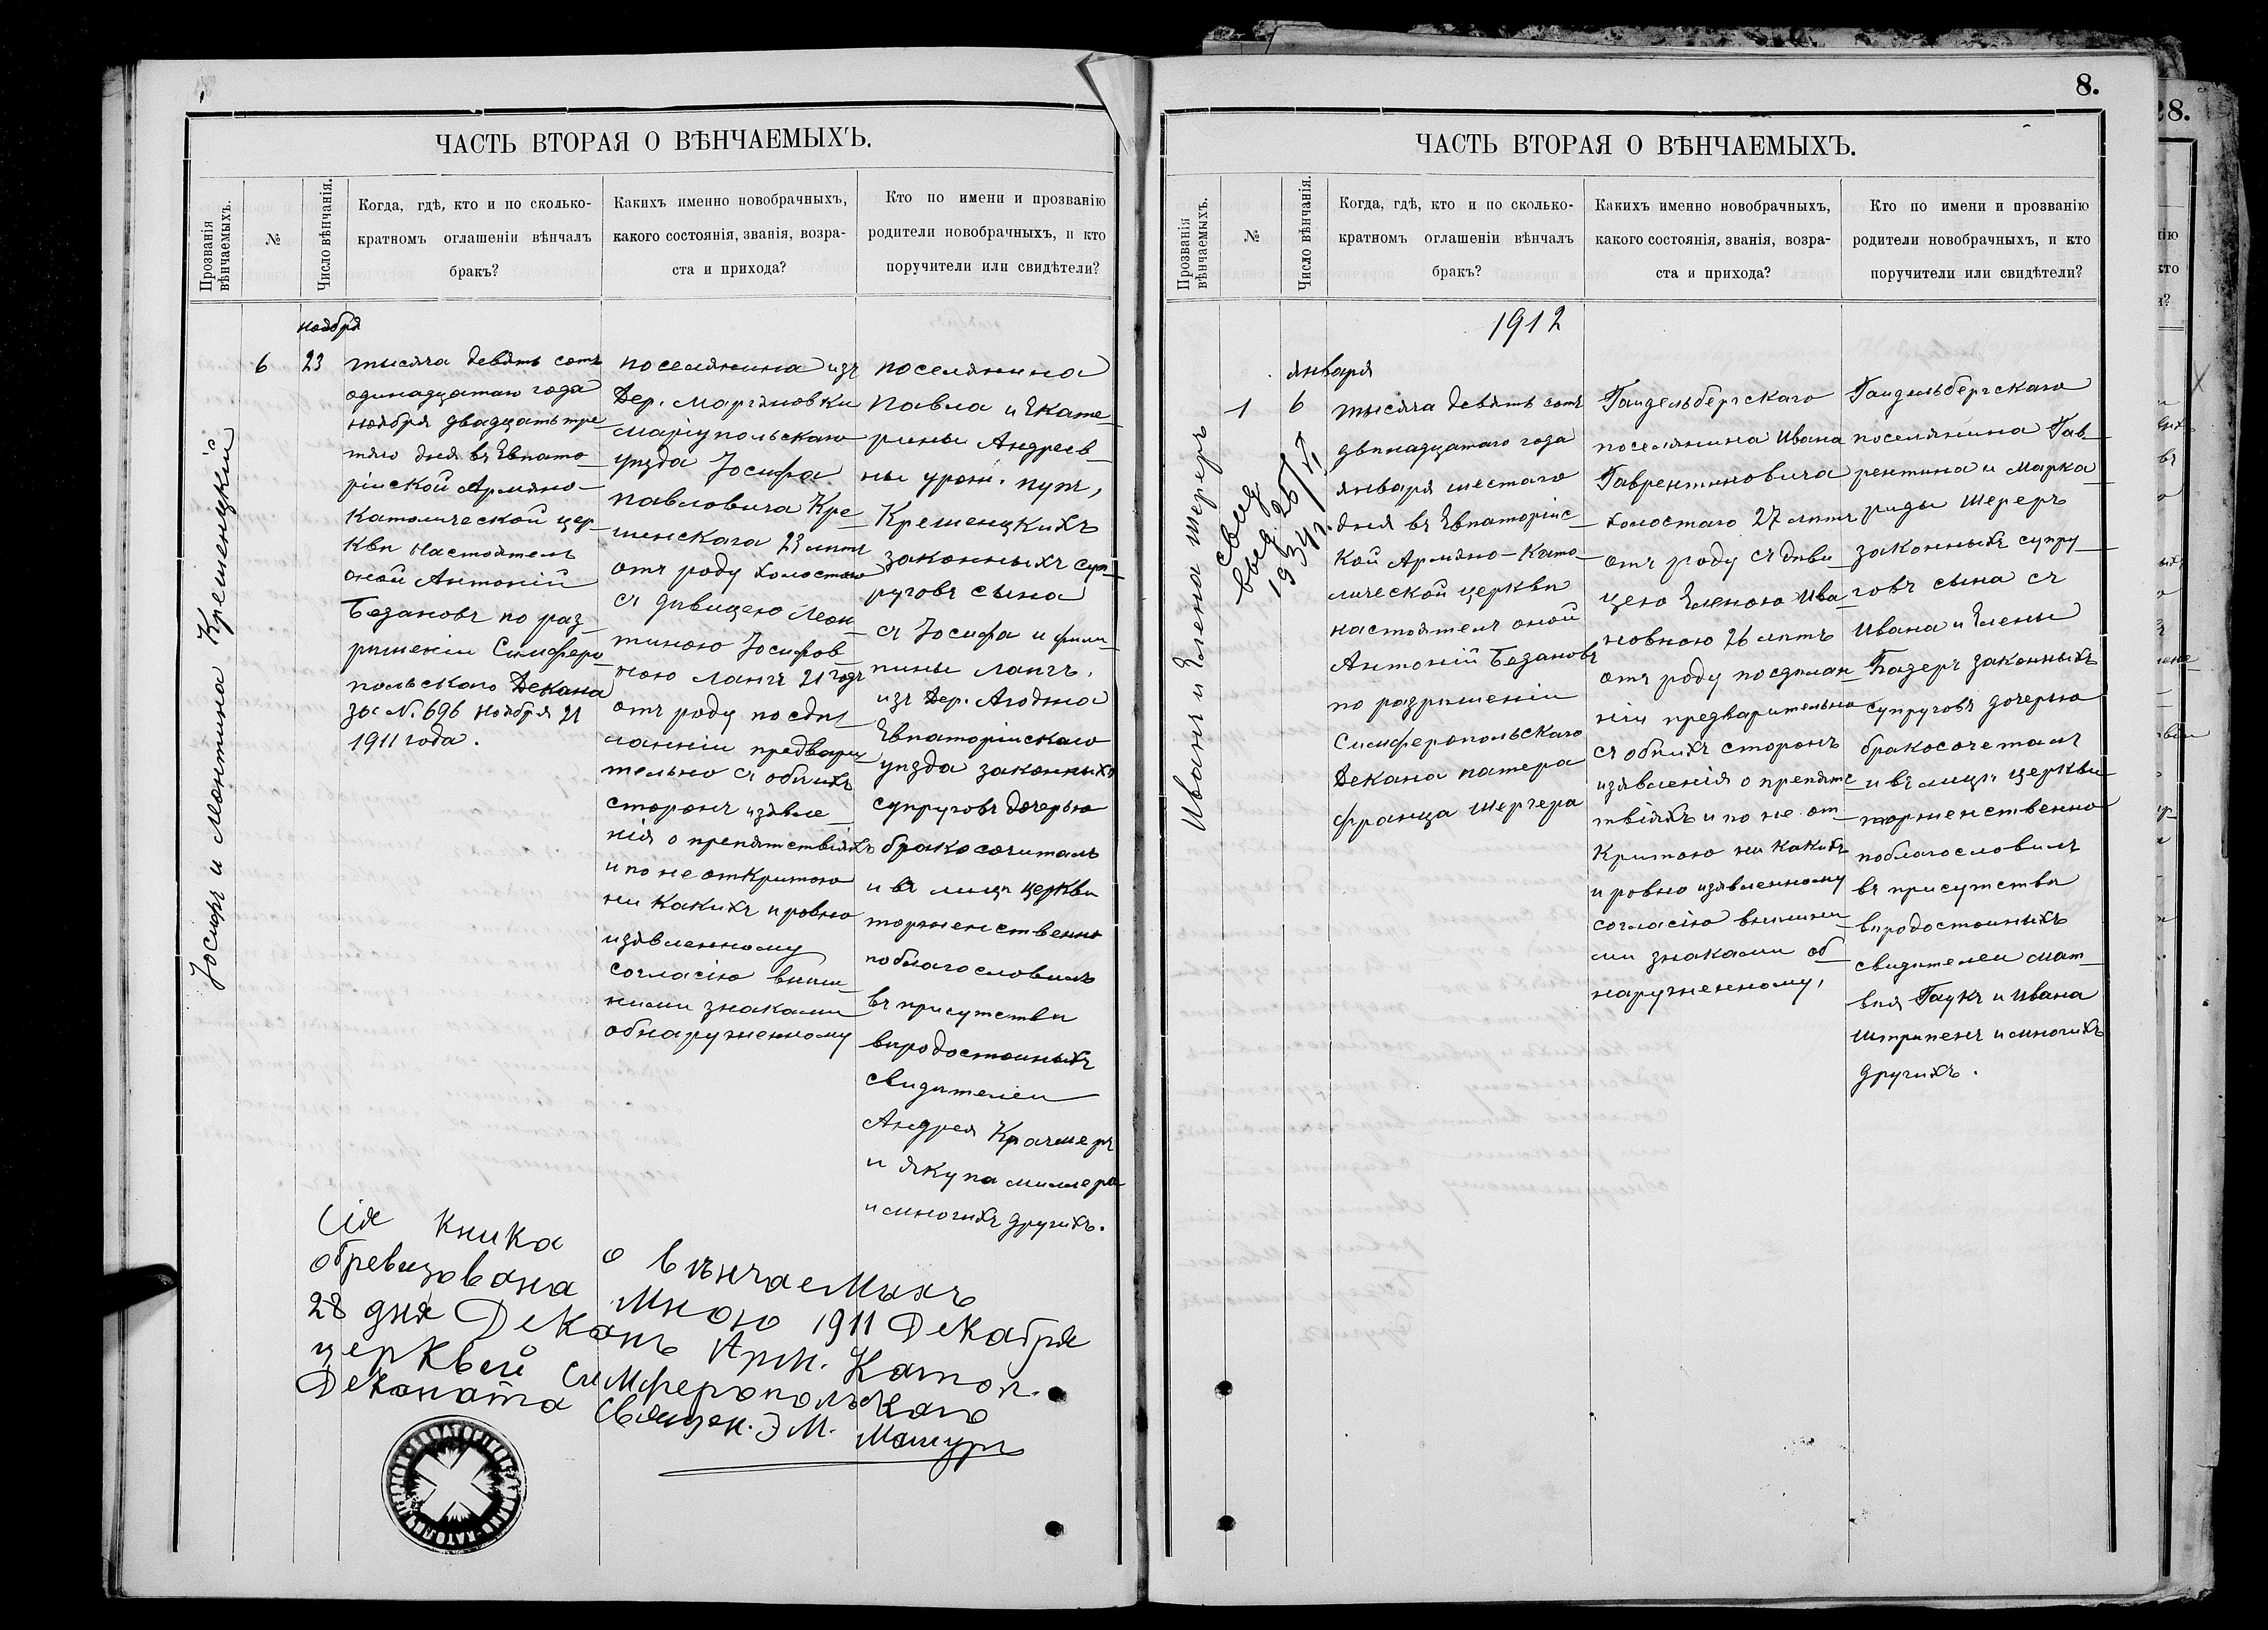 ЧАСТЬ ВТОРАЯ О ВѢНЧАЕМЫХЪ.
Прозванія
вѣнчаемыхъ.
№
Число вѣнчанія.
Когда, гдѣ, кто и по сколько-
кратномъ оглашеніи вѣнчалъ
бракъ?
Какихъ именно новобрачныхъ,
какого состоянія, званія, возра-
ста и прихода?
Кто по имени и прозванію
родители новобрачныхъ, и кто
поручители или свидѣтели?
Іосифъ и Леонтина Кременецкій
ноября
6
23
тысяча девять сотъ
одинадцатаго года
ноября двадцать тре-
тяго дня въ Евпато-
рійской Армяно-
Католической цер-
кви настоятель
оной Антоній
Безановъ по раз-
рѣшеніи Симферо
польскаго Декана
за N. 696 ноября 21
1911 года.
поселянина изъ
Дер. Маріяновки
Маріупольскаго
уѣзда Іосифа
Павловича Кре-
менскаго 23 лѣтъ
отъ роду холостаго
съ дѣвицею Леон-
тиною Іосифов-
ною Лангъ 21 годъ
отъ роду по сдѣ
ланніи предвари
тельно съ обѣихъ
сторонъ изявле-
нія о препятствіяхъ
и по не открытою
ни какихъ и ровно
изявленному
согласію внѣш-
ними знаками
обнаруженному
поселянина
Павла и Екате-
рины Андреев-
ны урож.
Кременцкихъ
законныхъ суп-
руговъ сына
съ Іосифа и фили-
пины Лангъ,
изъ Дер.
Евпаторійскаго
уѣзда законныхъ
супруговъ дочерью
бракосочиталъ
и въ лицѣ церкви
торженственно
поблагословилъ
въ присутстви
вѣродостоиныхъ
свидѣтелеи
Андрея
и Якупа Миллера
и многихъ другихъ.
Сія кника о вѣнчаемыхъ
обревизована Мною 1911 Декабря
28 дня Деканъ Арм. Катол.
церквей Симферопольскаго
Деканата Священ. Э М.
8.
ЧАСТЬ ВТОРАЯ О ВѢНЧАЕМЫХЪ.
Прозванія
вѣнчаемыхъ.
№
Число вѣнчанія.
Когда, гдѣ, кто и по сколько-
кратномъ оглашеніи вѣнчалъ
бракъ?
Какихъ именно новобрачныхъ,
какого состоянія, званія, возра-
ста и прихода?
Кто по имени и прозванію
родители новобрачныхъ, и кто
поручители или свидѣтели?
1912
Иванъ и Елена Шереръ
свид
выд. 25/VI
1934 г.
января
1
6
тысяча девять сотъ
двѣнадцатаго года
января шестаго
дня въ Евпаторійс-
кой Армяно-Като-
лической церкви
настоятелъ оной
Антоній Безановъ
по разрѣшеніи
Симферопольскаго
Декана патера
Франца Шергера
Гаидельбергскаго
поселянина Ивана
Гаврентиновича
холостаго 27 лѣтъ
отъ роду съ дѣви
цею Еленою Ива-
новною 26 лѣтъ
отъ роду по сдѣлан-
ніи предварительно
съ обѣихъ сторонъ
изявленія о препятс-
твіяхъ и по не от-
критою ни какихъ
и ровно изявленному
согласію внѣшни-
ми знаками об-
наруженному,
Гаидельбергскаго
поселянина Гав-
рентина и Марка
риды Шереръ
законныхъ супру-
говъ сына съ
Ивана и Елены
законныхъ
супруговъ дочерью
бракосочеталъ
и въ лицѣ церкви
торженственно
поблагословилъ
въ присутстви
вѣродостоиныхъ
свидѣтелеи Мат-
вѣя Гаукъ и Ивана
и многихъ
другихъ.
28.